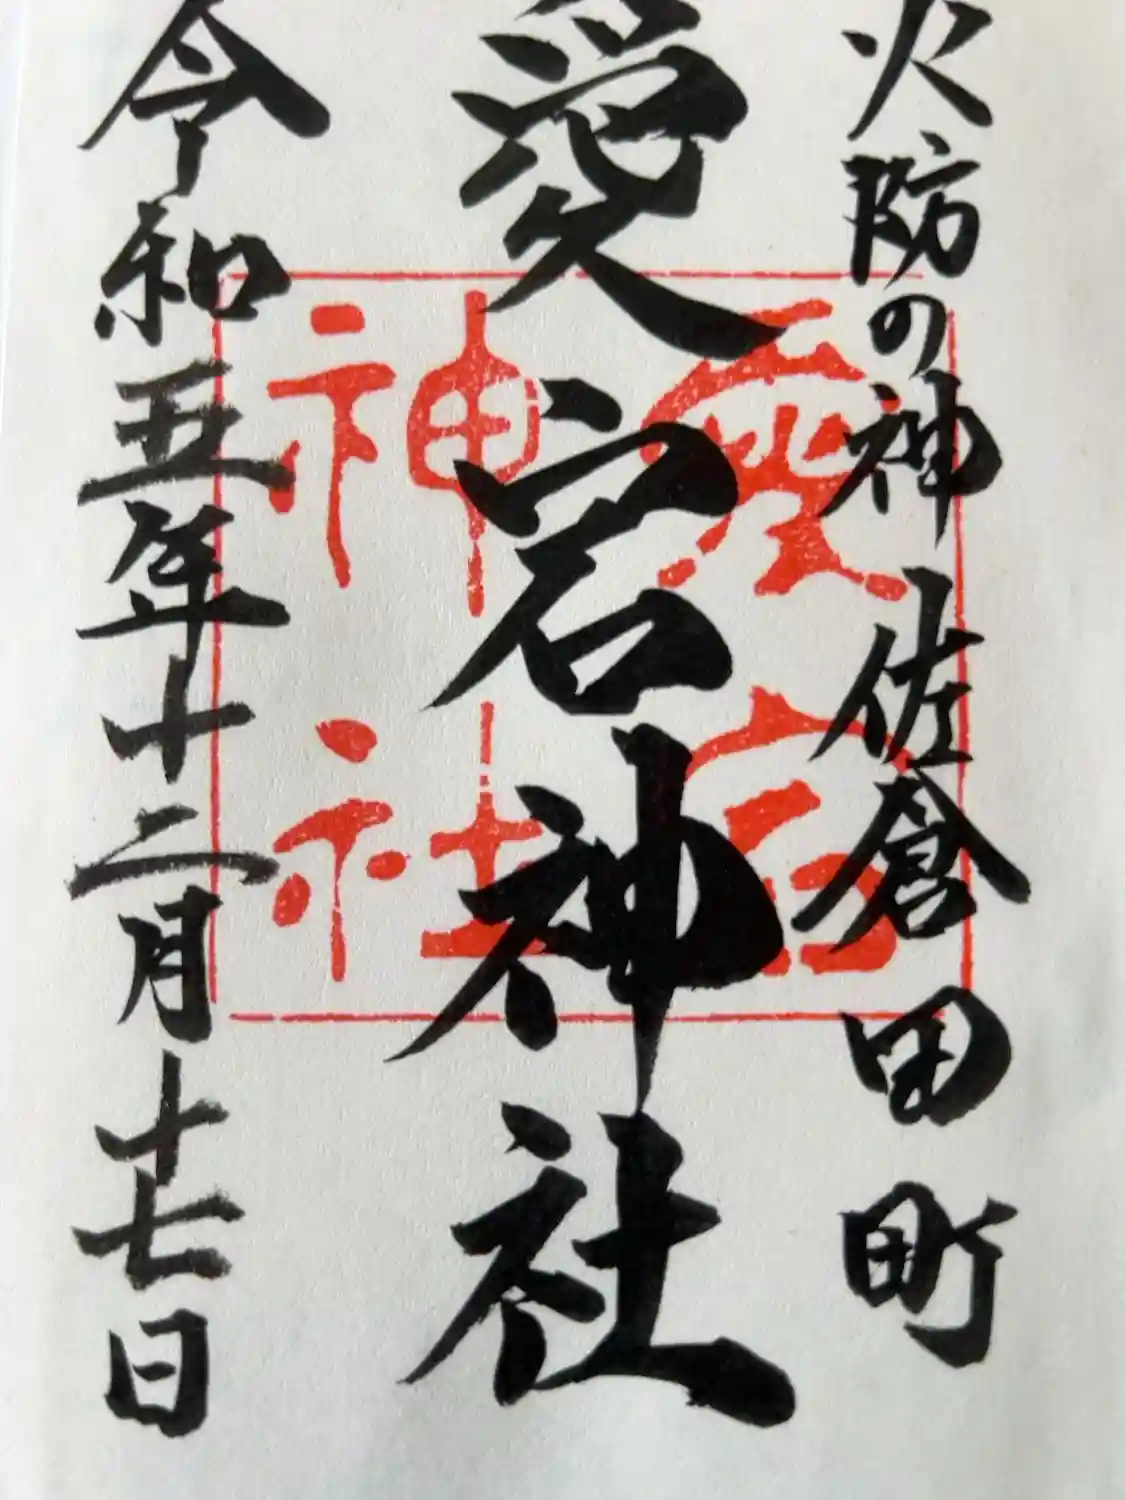 火防の神 佐倉田町
愛宕神社
愛宕
神社
令和五年十二月十七日